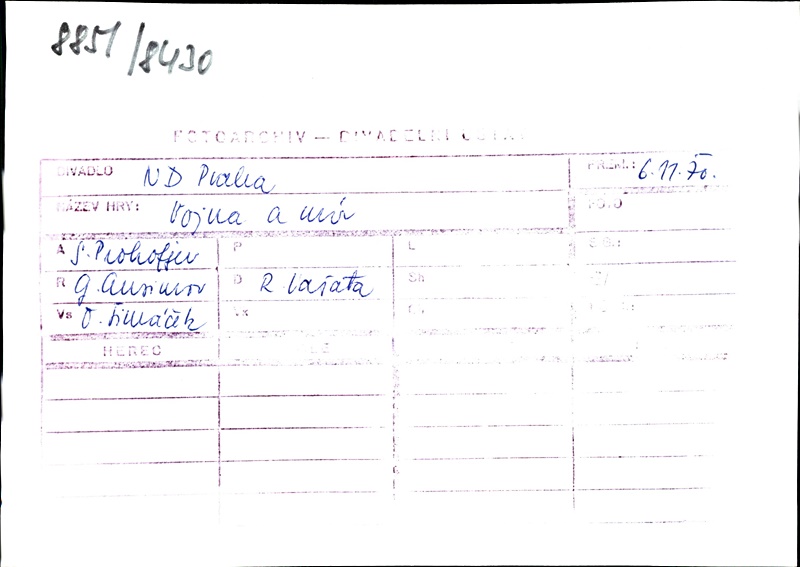 8851/8430
FOTOARCHIV — DIVADELNÍ ÚSTAV
DIVADLO ND Praha PREM.: 6.11.70.
NÁZEV HRY: Vojna a mír
A S. Prokofjev P L
R G. Ansimov D R. Vašata Sh
Vs O. Šimáček
HEREC